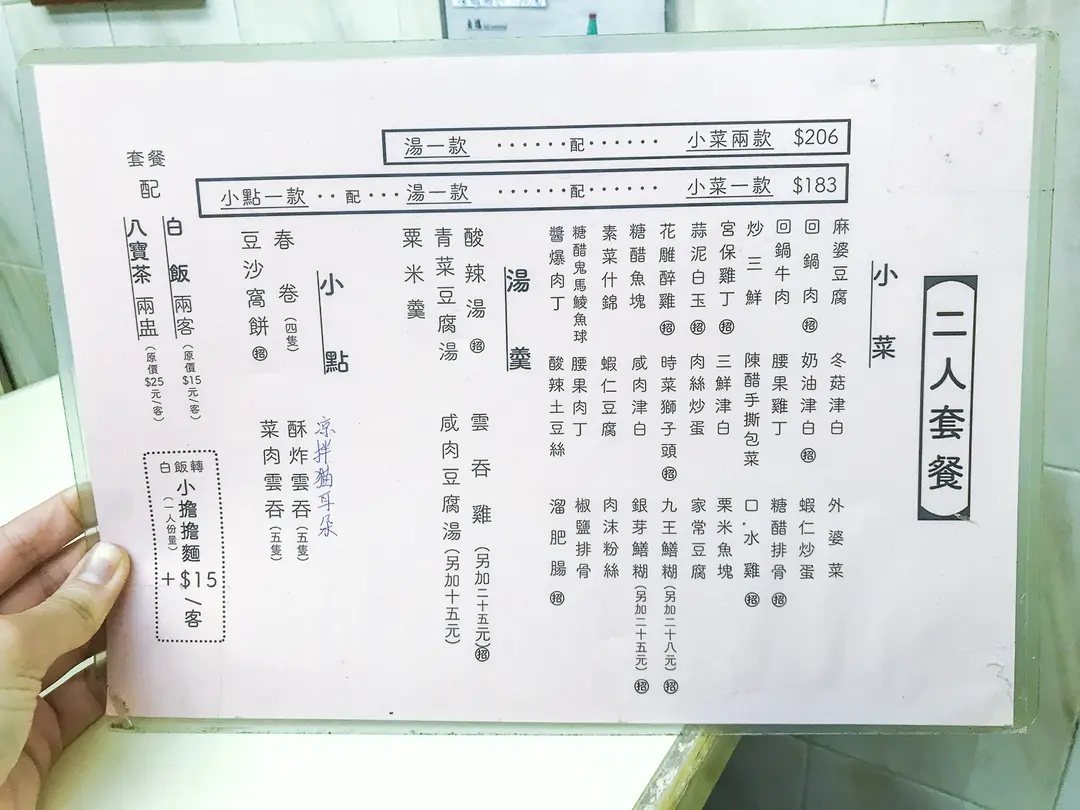 二人套餐
湯一款 ······配······ 小菜兩款 $206
小點一款 ··配··· 湯一款 ······配······ 小菜一款 $183
小菜
麻婆豆腐
冬菇津白
外婆菜
回鍋肉 招
奶油津白 招
蝦仁炒蛋
回鍋牛肉
腰果雞丁
糖醋排骨 招
炒三鮮
陳醋手撕包菜
口水雞 招
宮保雞丁 招
三鮮津白
粟米魚塊
蒜泥白玉 招
肉絲炒蛋
家常豆腐
花雕醉雞 招
時菜獅子頭 招
九王鱔糊 (另加二十八元) 招
糖醋魚塊
咸肉津白
銀芽鱔糊 (另加二十五元) 招
素菜什錦
蝦仁豆腐
肉沫粉絲
糖醋鬼馬鯪魚球
腰果肉丁
椒鹽排骨
醬爆肉丁
酸辣土豆絲
溜肥腸 招
湯羹
酸辣湯 招
雲吞雞 (另加二十五元) 招
青菜豆腐湯
咸肉豆腐湯 (另加十五元)
粟米羹
小點
涼拌猫耳朵
春卷 (四隻)
酥炸雲吞 (五隻)
豆沙窩餅 招
菜肉雲吞 (五隻)
套餐
配
白飯兩客 (原價$15元/客)
八寶茶兩盅 (原價$25元/客)
白飯轉
小擔擔麵
(一人份量)
+$15
/客